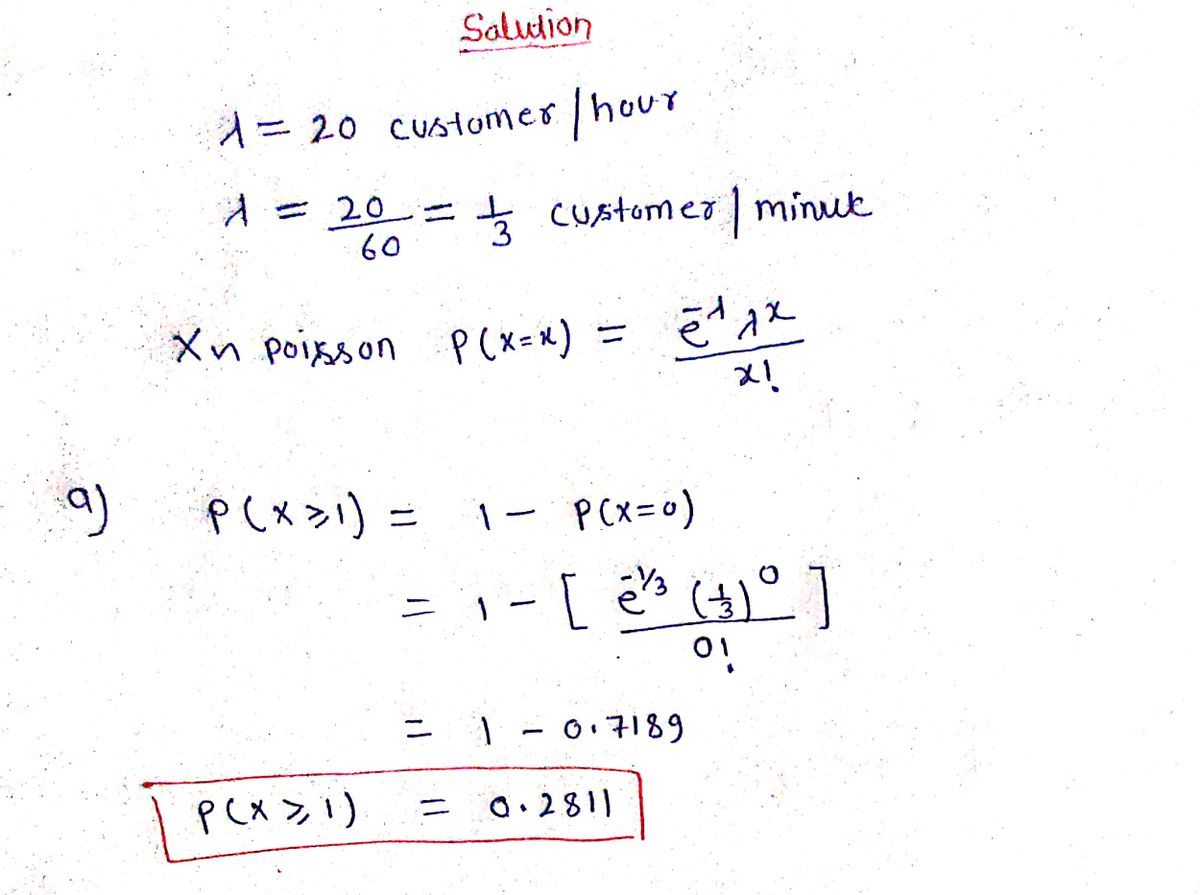 Salution
λ = 20 customer / hour
λ = 20/60 = 1/3 customer / minute
X ~ poisson P(X=x) = e^-λ λ^x / x!
a) P(X≥1) = 1 - P(X=0)
= 1 - [ e^-1/3 (1/3)^0 / 0! ]
= 1 - 0.7189
P(X≥1) = 0.2811